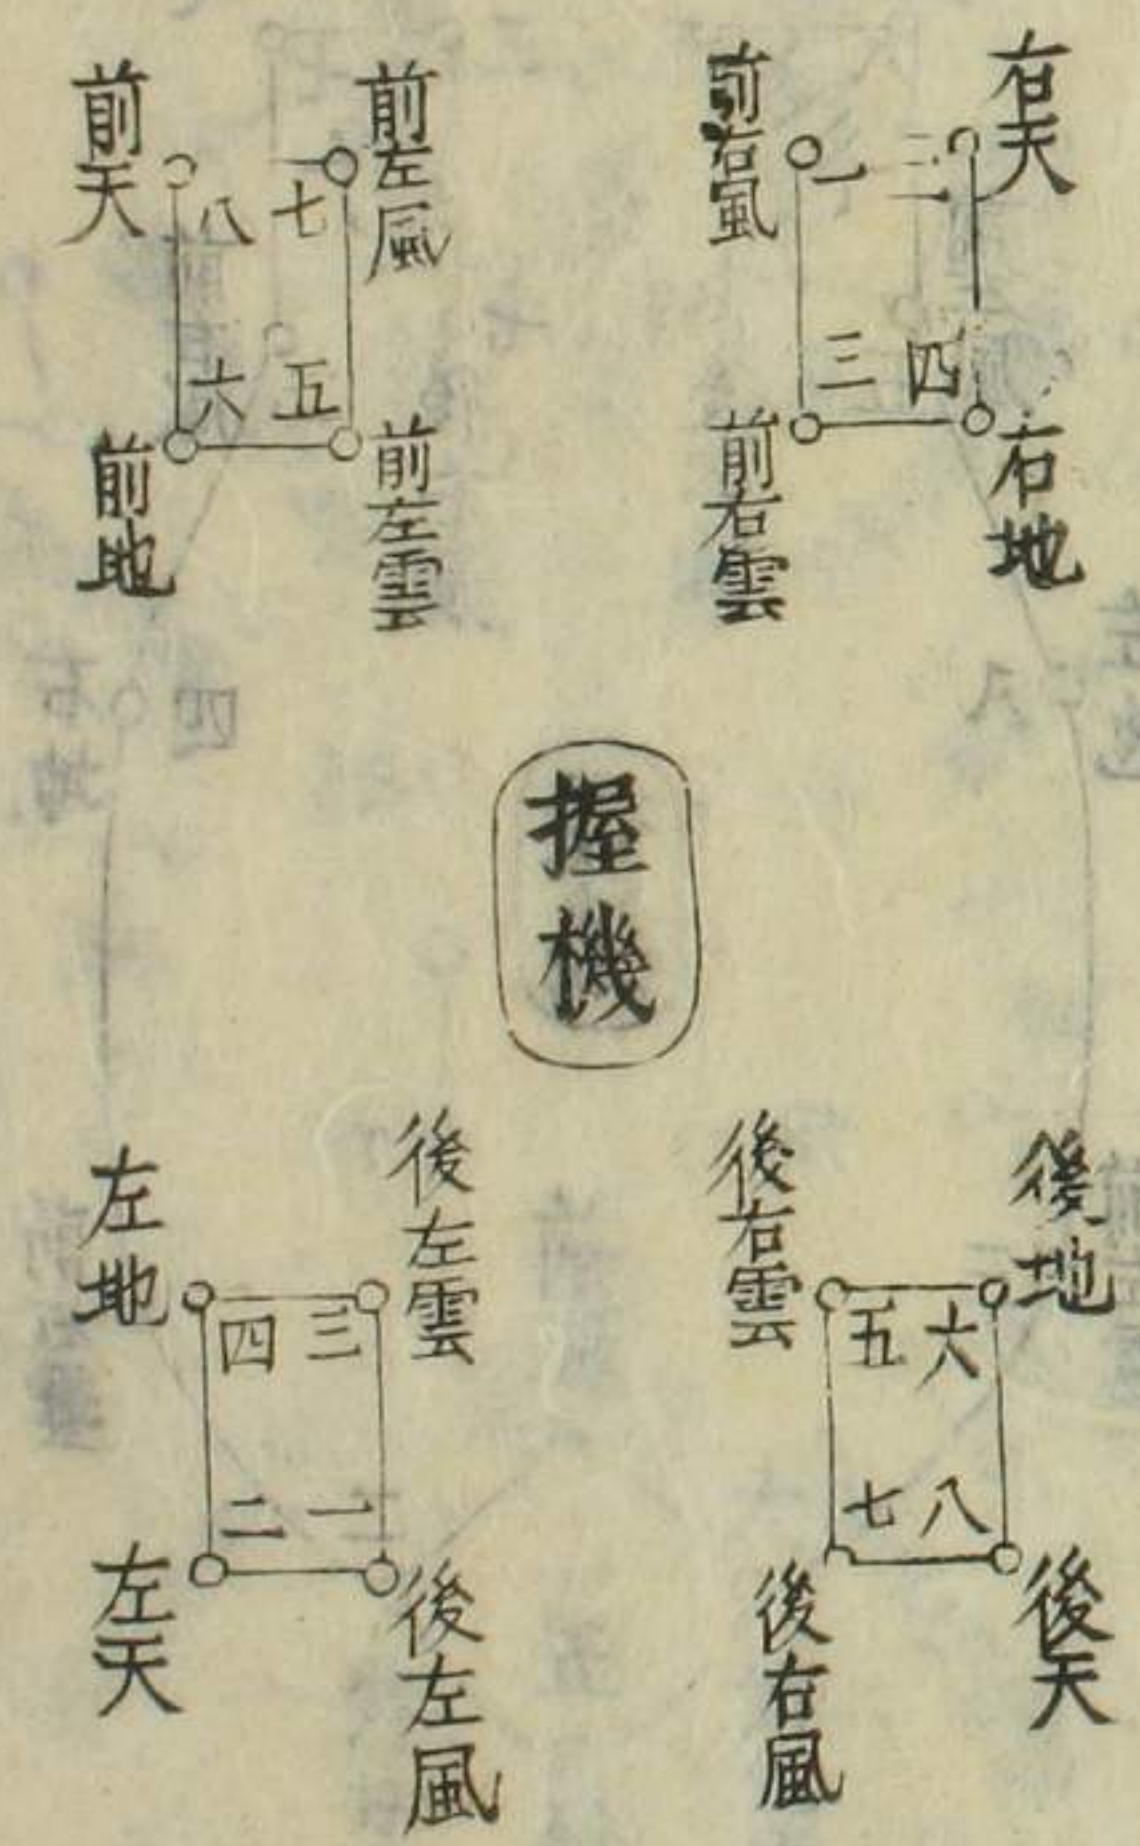 右天
前右風
一
二
三
四
右地
前右雲
前左風
前天
七
八
五
六
前左雲
前地
握機
後地
後右雲
五
六
七
八
後天
後右風
後左雲
左地
三
四
一
二
後左風
左天